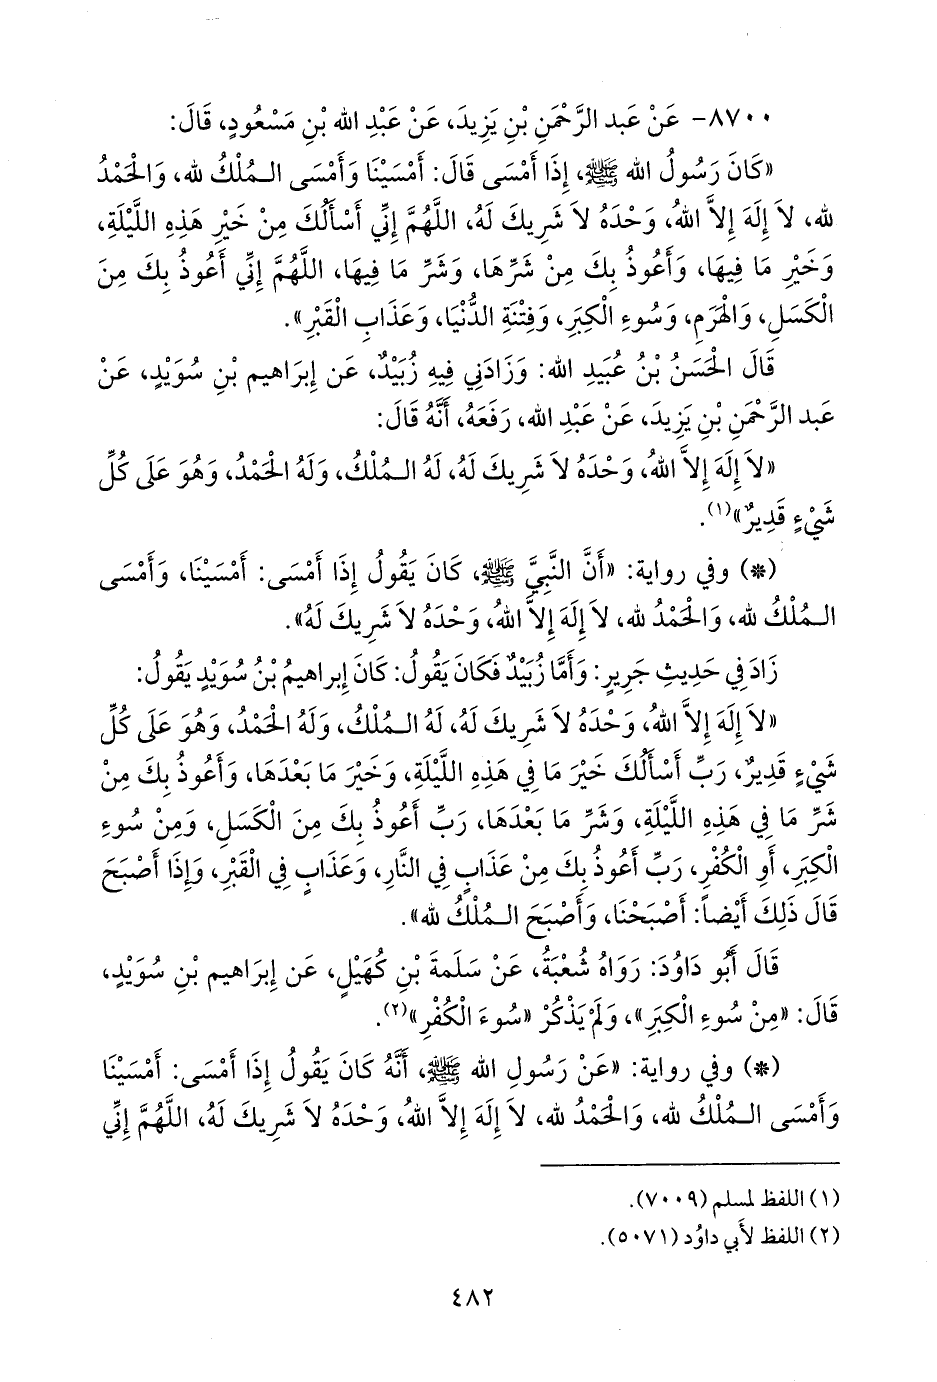 ٨٧٠٠- عَنْ عَبد الرَّحْمَنِ بْنِ يَزِيدَ، عَنْ عَبْدِ الله بْنِ مَسْعُودٍ، قَالَ:
«كَانَ رَسُولُ الله ﷺ، إِذَا أَمْسَى قَالَ: أَمْسَيْنَا وَأَمْسَى الـمُلْكُ لله، وَالْحَمْدُ
لله، لاَ إِلَهَ إِلاَّ اللهُ، وَحْدَهُ لاَ شَرِيكَ لَهُ، اللَّهُمَّ إِنِّي أَسْأَلُكَ مِنْ خَيْرِ هَذِهِ اللَّيْلَةِ،
وَخَيْرِ مَا فِيهَا، وَأَعُوذُ بِكَ مِنْ شَرِّهَا، وَشَرِّ مَا فِيهَا، اللَّهُمَّ إِنِّي أَعُوذُ بِكَ مِنَ
الْكَسَلِ، وَالْهَرَمِ، وَسُوءِ الْكِبَرِ، وَفِتْنَةِ الدُّنْيَا، وَعَذَابِ الْقَبْرِ».
قَالَ الْحَسَنُ بْنُ عُبَيدِ الله: وَزَادَنِي فِيهِ زُبَيْدٌ، عَن إِبرَاهيم بْنِ سُوَيْدٍ، عَنْ
عَبد الرَّحْمَنِ بْنِ يَزِيدَ، عَنْ عَبْدِ الله، رَفَعَهُ، أَنَّهُ قَالَ:
«لاَ إِلَهَ إِلاَّ اللهُ، وَحْدَهُ لاَ شَرِيكَ لَهُ، لَهُ الـمُلْكُ، وَلَهُ الْحَمْدُ، وَهُوَ عَلَى كُلِّ
شَيْءٍ قَدِيرٌ»(١).
(*) وفي رواية: «أَنَّ النَّبِيَّ ﷺ، كَانَ يَقُولُ إِذَا أَمْسَى: أَمْسَيْنَا، وَأَمْسَى
الـمُلْكُ لله، وَالْحَمْدُ لله، لاَ إِلَهَ إِلاَّ اللهُ، وَحْدَهُ لاَ شَرِيكَ لَهُ».
زَادَ فِي حَدِيثِ جَرِيرٍ: وَأَمَّا زُبَيْدٌ فَكَانَ يَقُولُ: كَانَ إِبراهيمُ بْنُ سُوَيْدٍ يَقُولُ:
«لاَ إِلَهَ إِلاَّ اللهُ، وَحْدَهُ لاَ شَرِيكَ لَهُ، لَهُ الـمُلْكُ، وَلَهُ الْحَمْدُ، وَهُوَ عَلَى كُلِّ
شَيْءٍ قَدِيرٌ، رَبِّ أَسْأَلُكَ خَيْرَ مَا فِي هَذِهِ اللَّيْلَةِ، وَخَيْرَ مَا بَعْدَهَا، وَأَعُوذُ بِكَ مِنْ
شَرِّ مَا فِي هَذِهِ اللَّيْلَةِ، وَشَرِّ مَا بَعْدَهَا، رَبِّ أَعُوذُ بِكَ مِنَ الْكَسَلِ، وَمِنْ سُوءِ
الْكِبَرِ، أَوِ الْكُفْرِ، رَبِّ أَعُوذُ بِكَ مِنْ عَذَابٍ فِي النَّارِ، وَعَذَابٍ فِي الْقَبْرِ، وَإِذَا أَصْبَحَ
قَالَ ذَلِكَ أَيْضاً: أَصْبَحْنَا، وَأَصْبَحَ الـمُلْكُ لله».
قَالَ أَبُو دَاوُدَ: رَوَاهُ شُعْبَةُ، عَنْ سَلَمَةَ بْنِ كُهَيْلٍ، عَن إِبرَاهيم بْنِ سُوَيْدٍ،
قَالَ: «مِنْ سُوءِ الْكِبَرِ»، وَلَمْ يَذْكُرْ «سُوءَ الْكُفْرِ»(٢).
(*) وفي رواية: «عَنْ رَسُولِ الله ﷺ، أَنَّهُ كَانَ يَقُولُ إِذَا أَمْسَى: أَمْسَيْنَا
وَأَمْسَى الـمُلْكُ لله، وَالْحَمْدُ لله، لاَ إِلَهَ إِلاَّ اللهُ، وَحْدَهُ لاَ شَرِيكَ لَهُ، اللَّهُمَّ إِنِّي
(١) اللفظ لمسلم (٧٠٠٩).
(٢) اللفظ لأبي داوُد (٥٠٧١).
٤٨٢